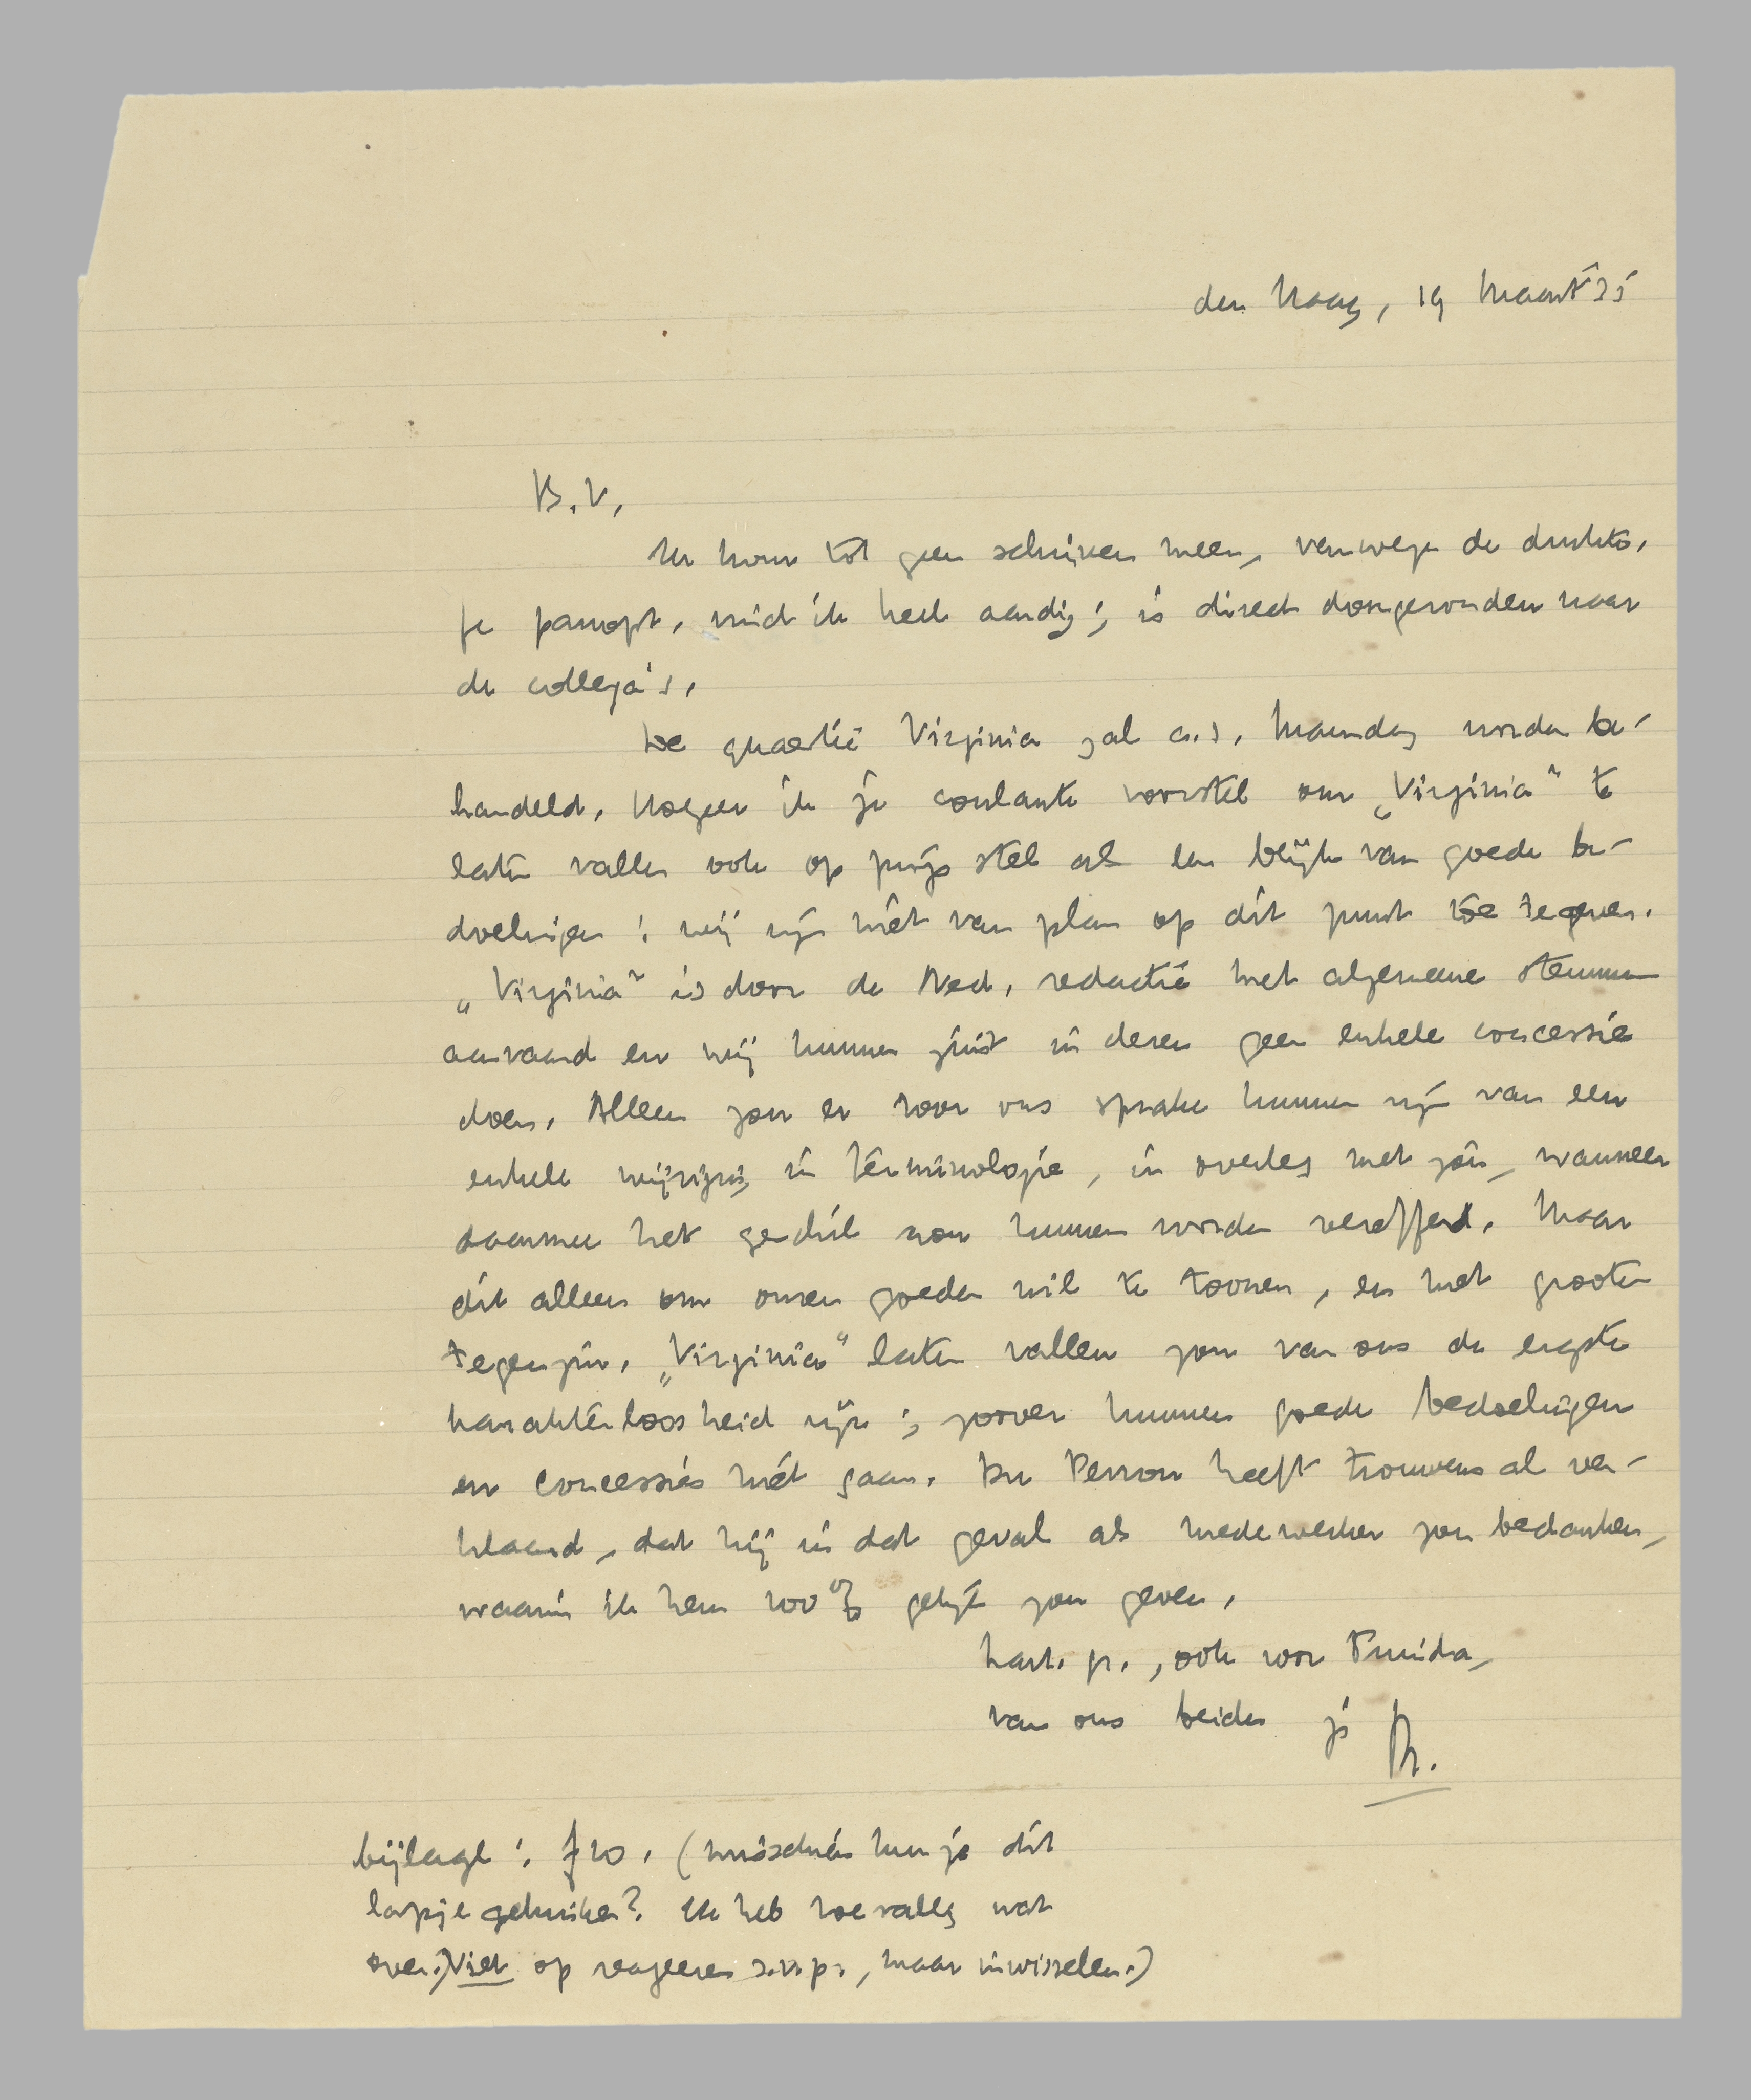 den Haag, 19 Maart '35
B.V.
Ik kom tot geen schrijven meer, vanwege de drukte.
Je panopt. vind ik heel aardig; is direct doorgezonden naar
de collega's.
De quaestie Virginia zal a.s. Maandag worden be-
handeld. Hoezeer ik je coulante voorstel om „Virginia" te
laten vallen ook op prijs stel als een blijk van goede be-
doelingen: wij zijn niet van plan op dit punt toe te geven.
„Virginia" is door de Ned. redactie met algemeene stemmen
aanvaard en wij kunnen juist in dezen geen enkele concessie
doen. Alleen zou er voor ons sprake kunnen zijn van een
enkele wijziging in terminologie, in overleg met jou, wanneer
daarmee het geschil zou kunnen worden vereffend. Maar
dit alleen om onzen goeden wil te toonen, en met grooten
tegenzin. „Virginia" laten vallen zou van ons de ergste
karakterloosheid zijn; zoover kunnen goede bedoelingen
en concessies niet gaan. Du Perron heeft trouwens al ver-
klaard, dat hij in dat geval als medewerker zou bedanken,
waarin ik hem 100% gelijk zou geven.
hart. gr., ook voor Truida,
van ons beiden je
bijlage: f10. (misschien kun je dit
lapje gebruiken? Ik heb toevallig wat
over.) Niet op reageeren s.v.p., maar inwisselen.)